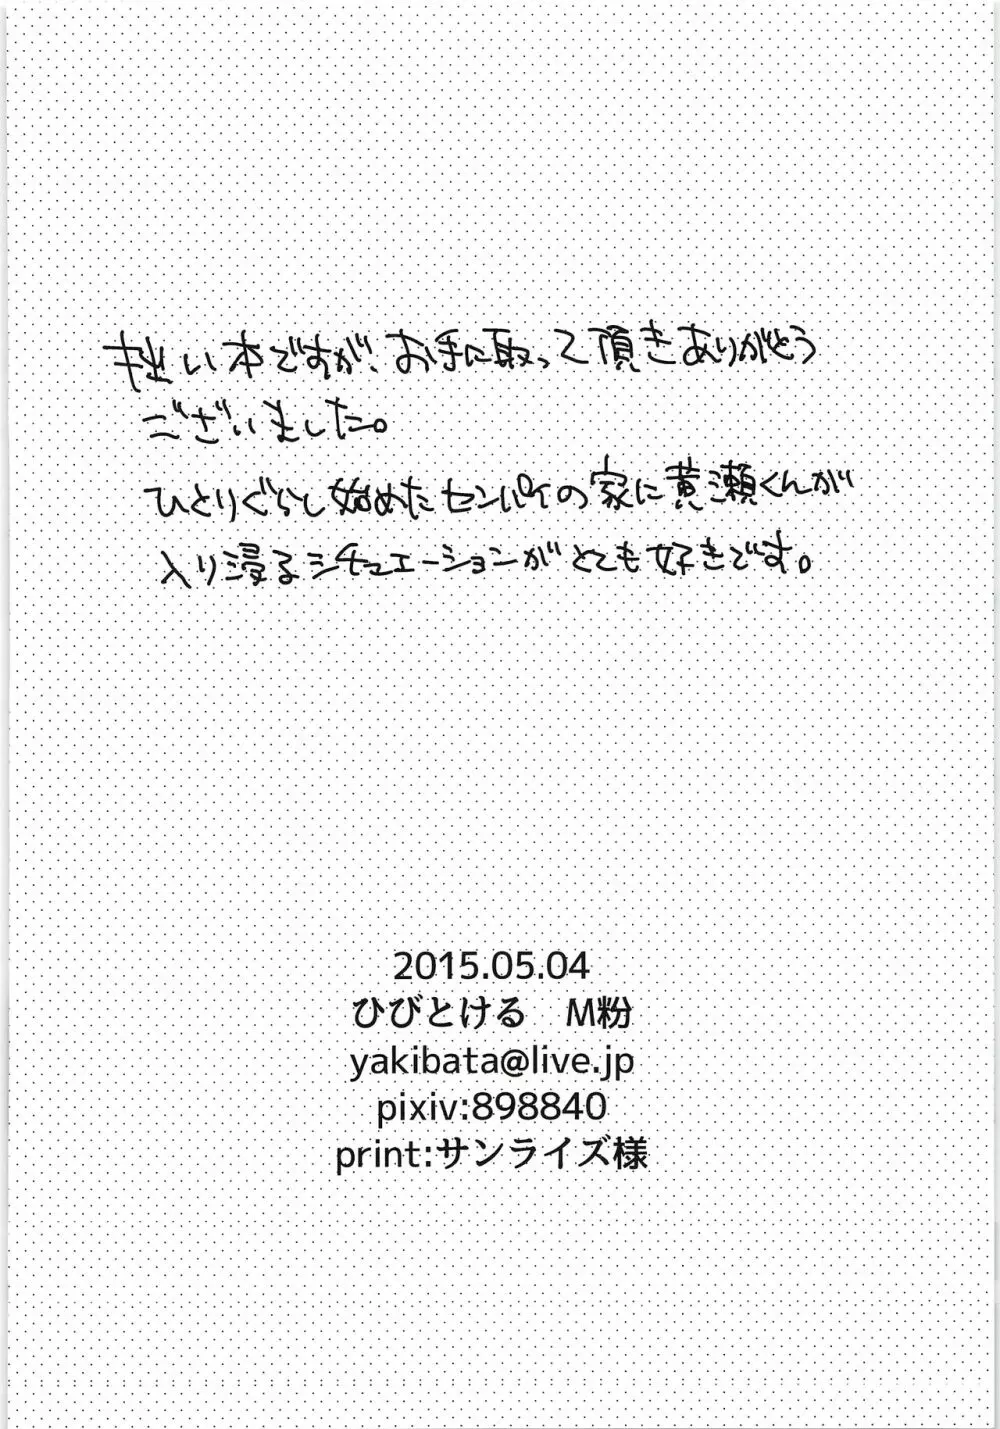 拙い本ですが、お手に取って頂きありがとう
ございました。
ひとりぐらし始めたセンパイの家に黄瀬くんが
入り浸るシチュエーションがとても好きです。
2015.05.04
ひびとける　M粉
yakibata@live.jp
pixiv:898840
print:サンライズ様